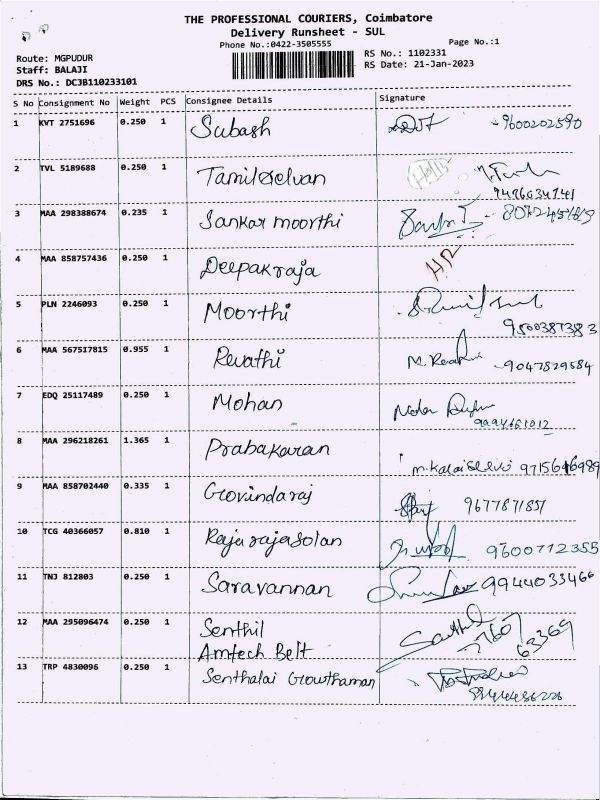 THE PROFESSIONAL COURIERS, Coimbatore
Delivery Runsheet - SUL
Phone No.:0422-3505555
Page No.:1
Route: MGPUDUR
RS No.: 1102331
Staff: BALAJI
RS Date: 21-Jan-2023
DRS No.: DCJB110233101
S No Consignment No Weight PCS Consignee Details Signature
1 KVT 2751696 0.250 1 Subash -9600202590
2 TVL 5189688 0.250 1 Tamilselvan
3 MAA 298388674 0.235 1 Sankar moorthi
4 MAA 858757436 0.250 1 Deepakraja
5 PLN 2246093 0.250 1 Moorthi
9500387383
6 MAA 567517815 0.955 1 Revathi -9047829584
7 EDQ 25117489 0.250 1 Mohan
8 MAA 296218261 1.365 1 Prabakaran
m.kalaiselvi
9 MAA 858702440 0.335 1 Govindaraj 9677871851
10 TCG 40366057 0.810 1 Rajarajasolan 9600712355
11 TNJ 812803 0.250 1 Saravannan 9944033466
12 MAA 295096474 0.250 1 Senthil
Amtech Belt
13 TRP 4830096 0.250 1 Senthalai Gowthaman